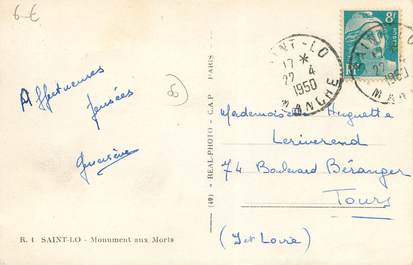 6-€
SAINT-LO
17 *
22 4
1950
MANCHE
8F
Affectueuses
pensées
Geneviève
(49) REAL-PHOTO - C.A.P - PARIS
Mademoiselle Huguette
Leriverend
74 Boulevard Béranger
Tours
(I et Loire)
R. 1 SAINT-LO - Monument aux Morts